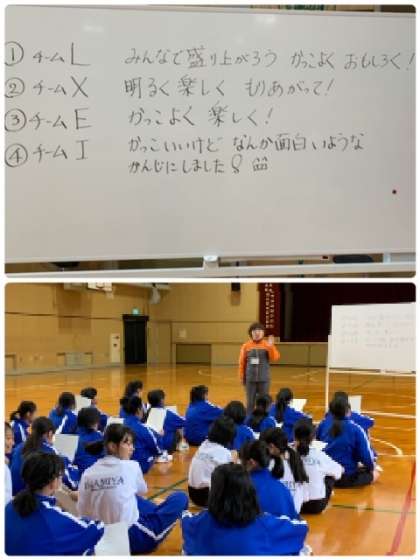 ① チームL みんなで盛り上がろう かっこよく おもしろく!
② チームX 明るく 楽しく もりあがって!
③ チームE かっこよく 楽しく!
④ チームI かっこいいけど なんか面白いような
かんじにしました